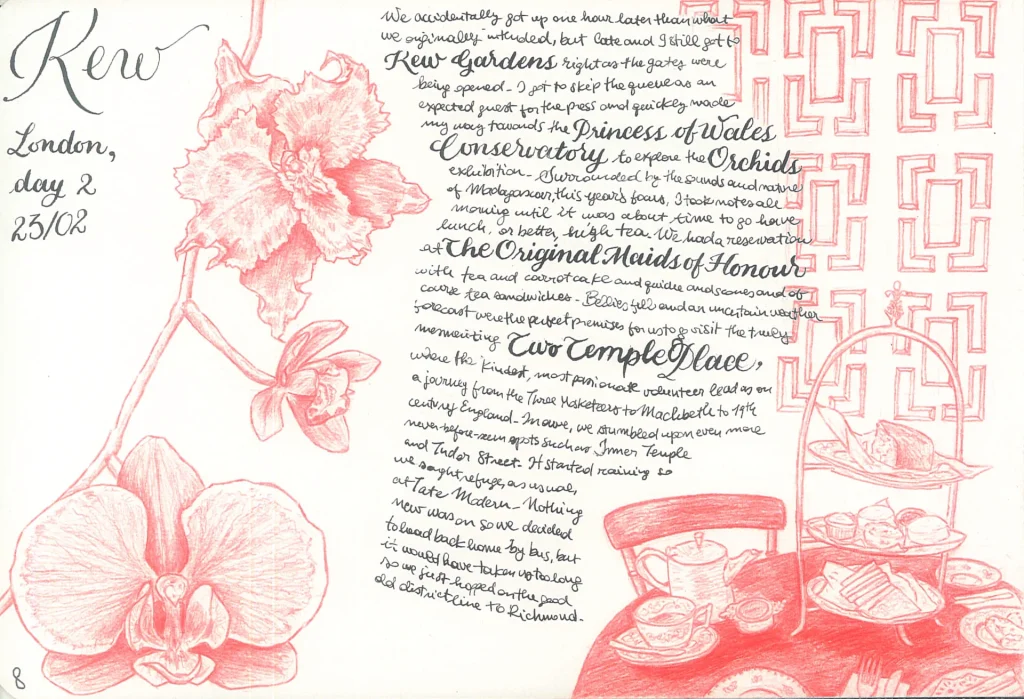 Kew
London,
day 2
23/02
We accidentally got up one hour later than what
we originally intended, but Cate and I still got to
Kew Gardens right as the gates were
being opened. I got to skip the queue as an
expected guest for the press and quickly made
my way towards the Princess of Wales
Conservatory to explore the Orchids
exhibition. Surrounded by the sounds and nature
of Madagascar, this year's focus, I took notes all
morning until it was about time to go have
lunch, or better, high tea. We had a reservation
at The Original Maids of Honour
with tea and carrot cake and quiche and scones and of
course tea sandwiches. Bellies full and an uncertain weather
forecast were the perfect premises for us to go visit the truly
mesmerising Two Temple Place,
where the kindest, most passionate volunteer lead us on
a journey from the Three Musketeers to Machbeth to 19th
century England. In awe, we stumbled upon even more
never-before-seen spots such as Inner Temple
and Tudor Street. It started raining so
we sought refuge, as usual,
at Tate Modern. Nothing
new was on so we decided
to head back home by bus, but
it would have taken us too long
so we just hopped on the good
old district line to Richmond.
8